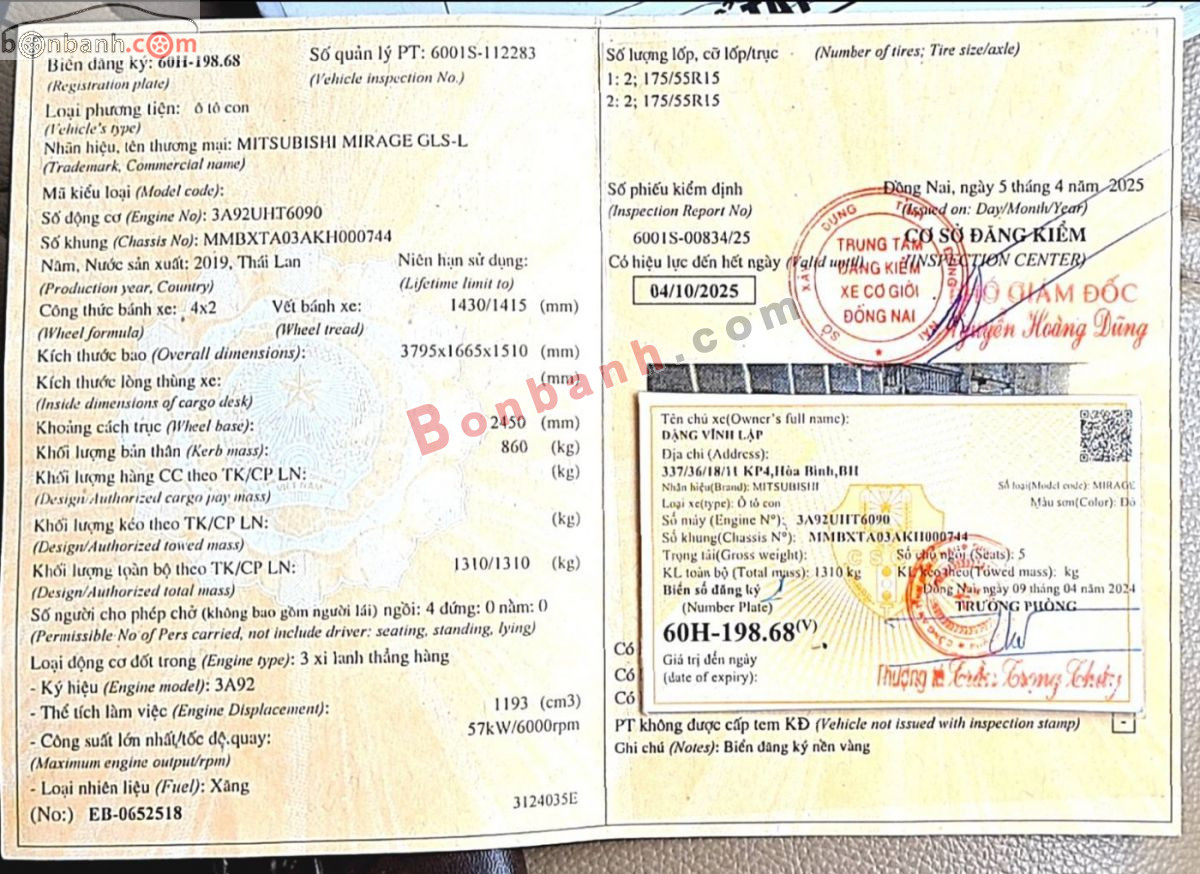 bonbanh.com
Biển đăng ký: 60H-198.68
Số quản lý PT: 6001S-112283
(Registration plate)
(Vehicle inspection No.)
Loại phương tiện: ô tô con
(Vehicle's type)
Nhãn hiệu, tên thương mại: MITSUBISHI MIRAGE GLS-L
(Trademark, Commercial name)
Mã kiểu loại (Model code):
Số động cơ (Engine No): 3A92UHT6090
Số khung (Chassis No): MMBXTA03AKH000744
Năm, Nước sản xuất: 2019, Thái Lan
Niên hạn sử dụng:
(Production year, Country)
(Lifetime limit to)
Công thức bánh xe: 4x2
Vết bánh xe: 1430/1415 (mm)
(Wheel formula)
(Wheel tread)
Kích thước bao (Overall dimensions): 3795x1665x1510 (mm)
Kích thước lòng thùng xe: (mm)
(Inside dimensions of cargo desk)
Khoảng cách trục (Wheel base): 2450 (mm)
Khối lượng bản thân (Kerb mass): 860 (kg)
Khối lượng hàng CC theo TK/CP LN: (kg)
(Design/Authorized cargo pay mass)
Khối lượng kéo theo TK/CP LN: (kg)
(Design/Authorized towed mass)
Khối lượng toàn bộ theo TK/CP LN: 1310/1310 (kg)
(Design/Authorized total mass)
Số người cho phép chở (không bao gồm người lái) ngồi: 4 đứng: 0 nằm: 0
(Permissible No of Pers carried, not include driver: seating, standing, lying)
Loại động cơ đốt trong (Engine type): 3 xi lanh thẳng hàng
- Ký hiệu (Engine model): 3A92
- Thể tích làm việc (Engine Displacement): 1193 (cm3)
- Công suất lớn nhất/tốc độ quay: 57kW/6000rpm
(Maximum engine output/rpm)
- Loại nhiên liệu (Fuel): Xăng
(No:) EB-0652518
3124035E
Số lượng lốp, cỡ lốp/trục (Number of tires; Tire size/axle)
1: 2; 175/55R15
2: 2; 175/55R15
Số phiếu kiểm định
(Inspection Report No)
6001S-00834/25
Có hiệu lực đến hết ngày (Valid until)
04/10/2025
Đồng Nai, ngày 5 tháng 4 năm 2025
(Issued on: Day/Month/Year)
CƠ SỞ ĐĂNG KIỂM
(INSPECTION CENTER)
TRUNG TÂM
ĐĂNG KIỂM
XE CƠ GIỚI
ĐỒNG NAI
PHÓ GIÁM ĐỐC
Nguyễn Hoàng Dũng
Bonbanh.com
Tên chủ xe(Owner's full name):
ĐẶNG VĨNH LẬP
Địa chỉ (Address):
337/36/18/11 KP4,Hòa Bình,BH
Nhãn hiệu(Brand): MITSUBISHI
Số loại(Model code): MIRAGE
Loại xe(type): Ô tô con
Màu sơn(Color): Đỏ
Số máy (Engine N°): 3A92UHT6090
Số khung(Chassis N°): MMBXTA03AKH000744
Trọng tải(Gross weight):
Số chỗ ngồi (Seats): 5
KL toàn bộ (Total mass): 1310 kg
KL kéo theo(Towed mass): kg
Biển số đăng ký
(Number Plate)
Đồng Nai, ngày 09 tháng 04 năm 2024
TRƯỞNG PHÒNG
60H-198.68(V)
Giá trị đến ngày
(date of expiry):
Thượng tá Trần Trọng Thủy
Có
Có
Có
PT không được cấp tem KĐ (Vehicle not issued with inspection stamp) -
Ghi chú (Notes): Biển đăng ký nền vàng